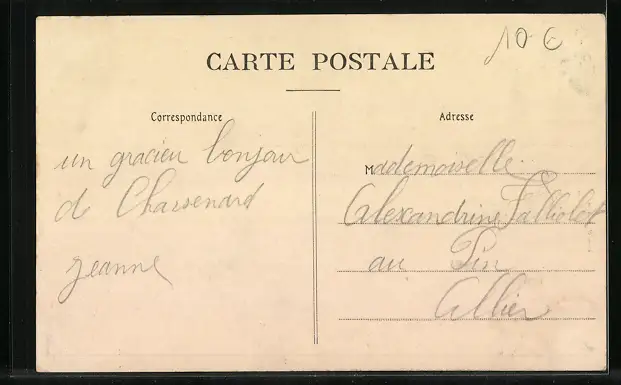 10 €
CARTE POSTALE
Correspondance
Adresse
un gracieu bonjour
de Chassenard
Jeanne
Mademoiselle
Alexandrine
au Pin
Allier